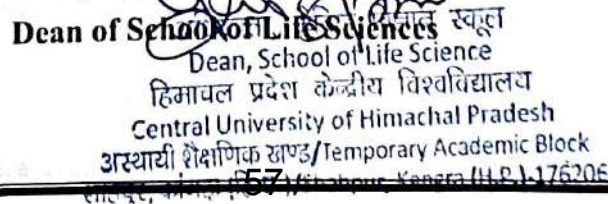 Dean of School of Life Sciences
स्कूल
Dean, School of Life Science
हिमाचल प्रदेश केन्द्रीय विश्वविद्यालय
Central University of Himachal Pradesh
अस्थायी शैक्षणिक खण्ड/Temporary Academic Block
57
Shahpur, Kangra (H.P.)-176206